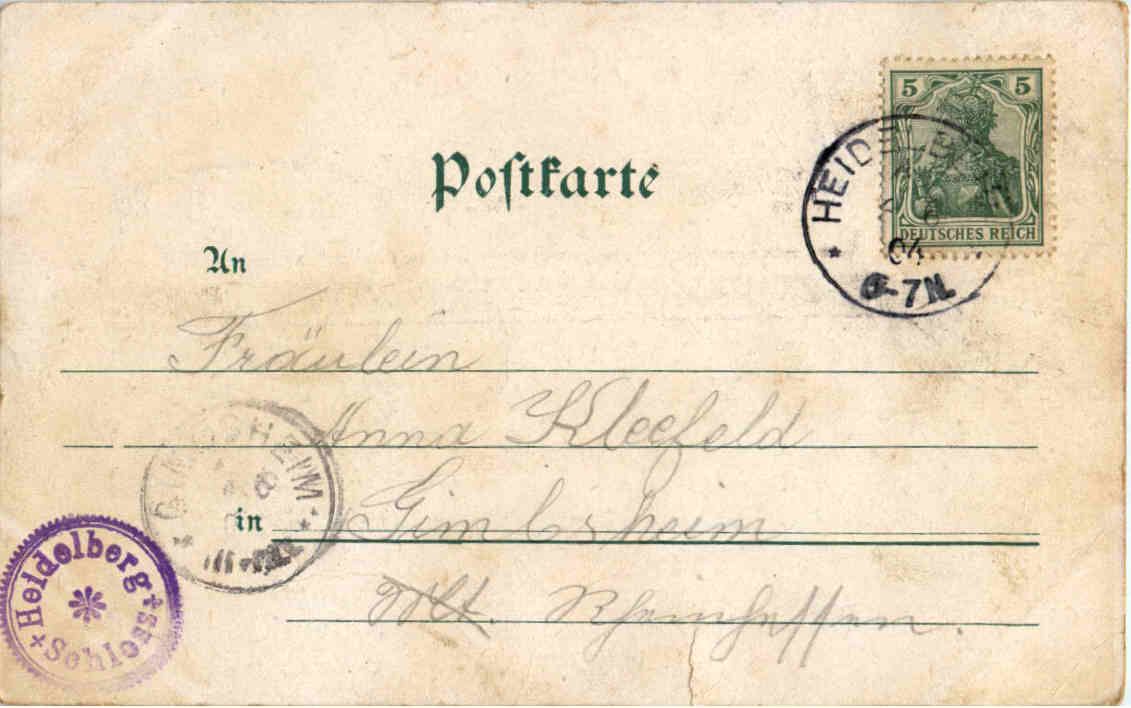 5 5
DEUTSCHES REICH
Postkarte
HEIDELB
04
6-7N.
An
Fräulein
Anna Kleefeld
in Gimbsheim
Rheinhessen.
Heidelberg
Schloss